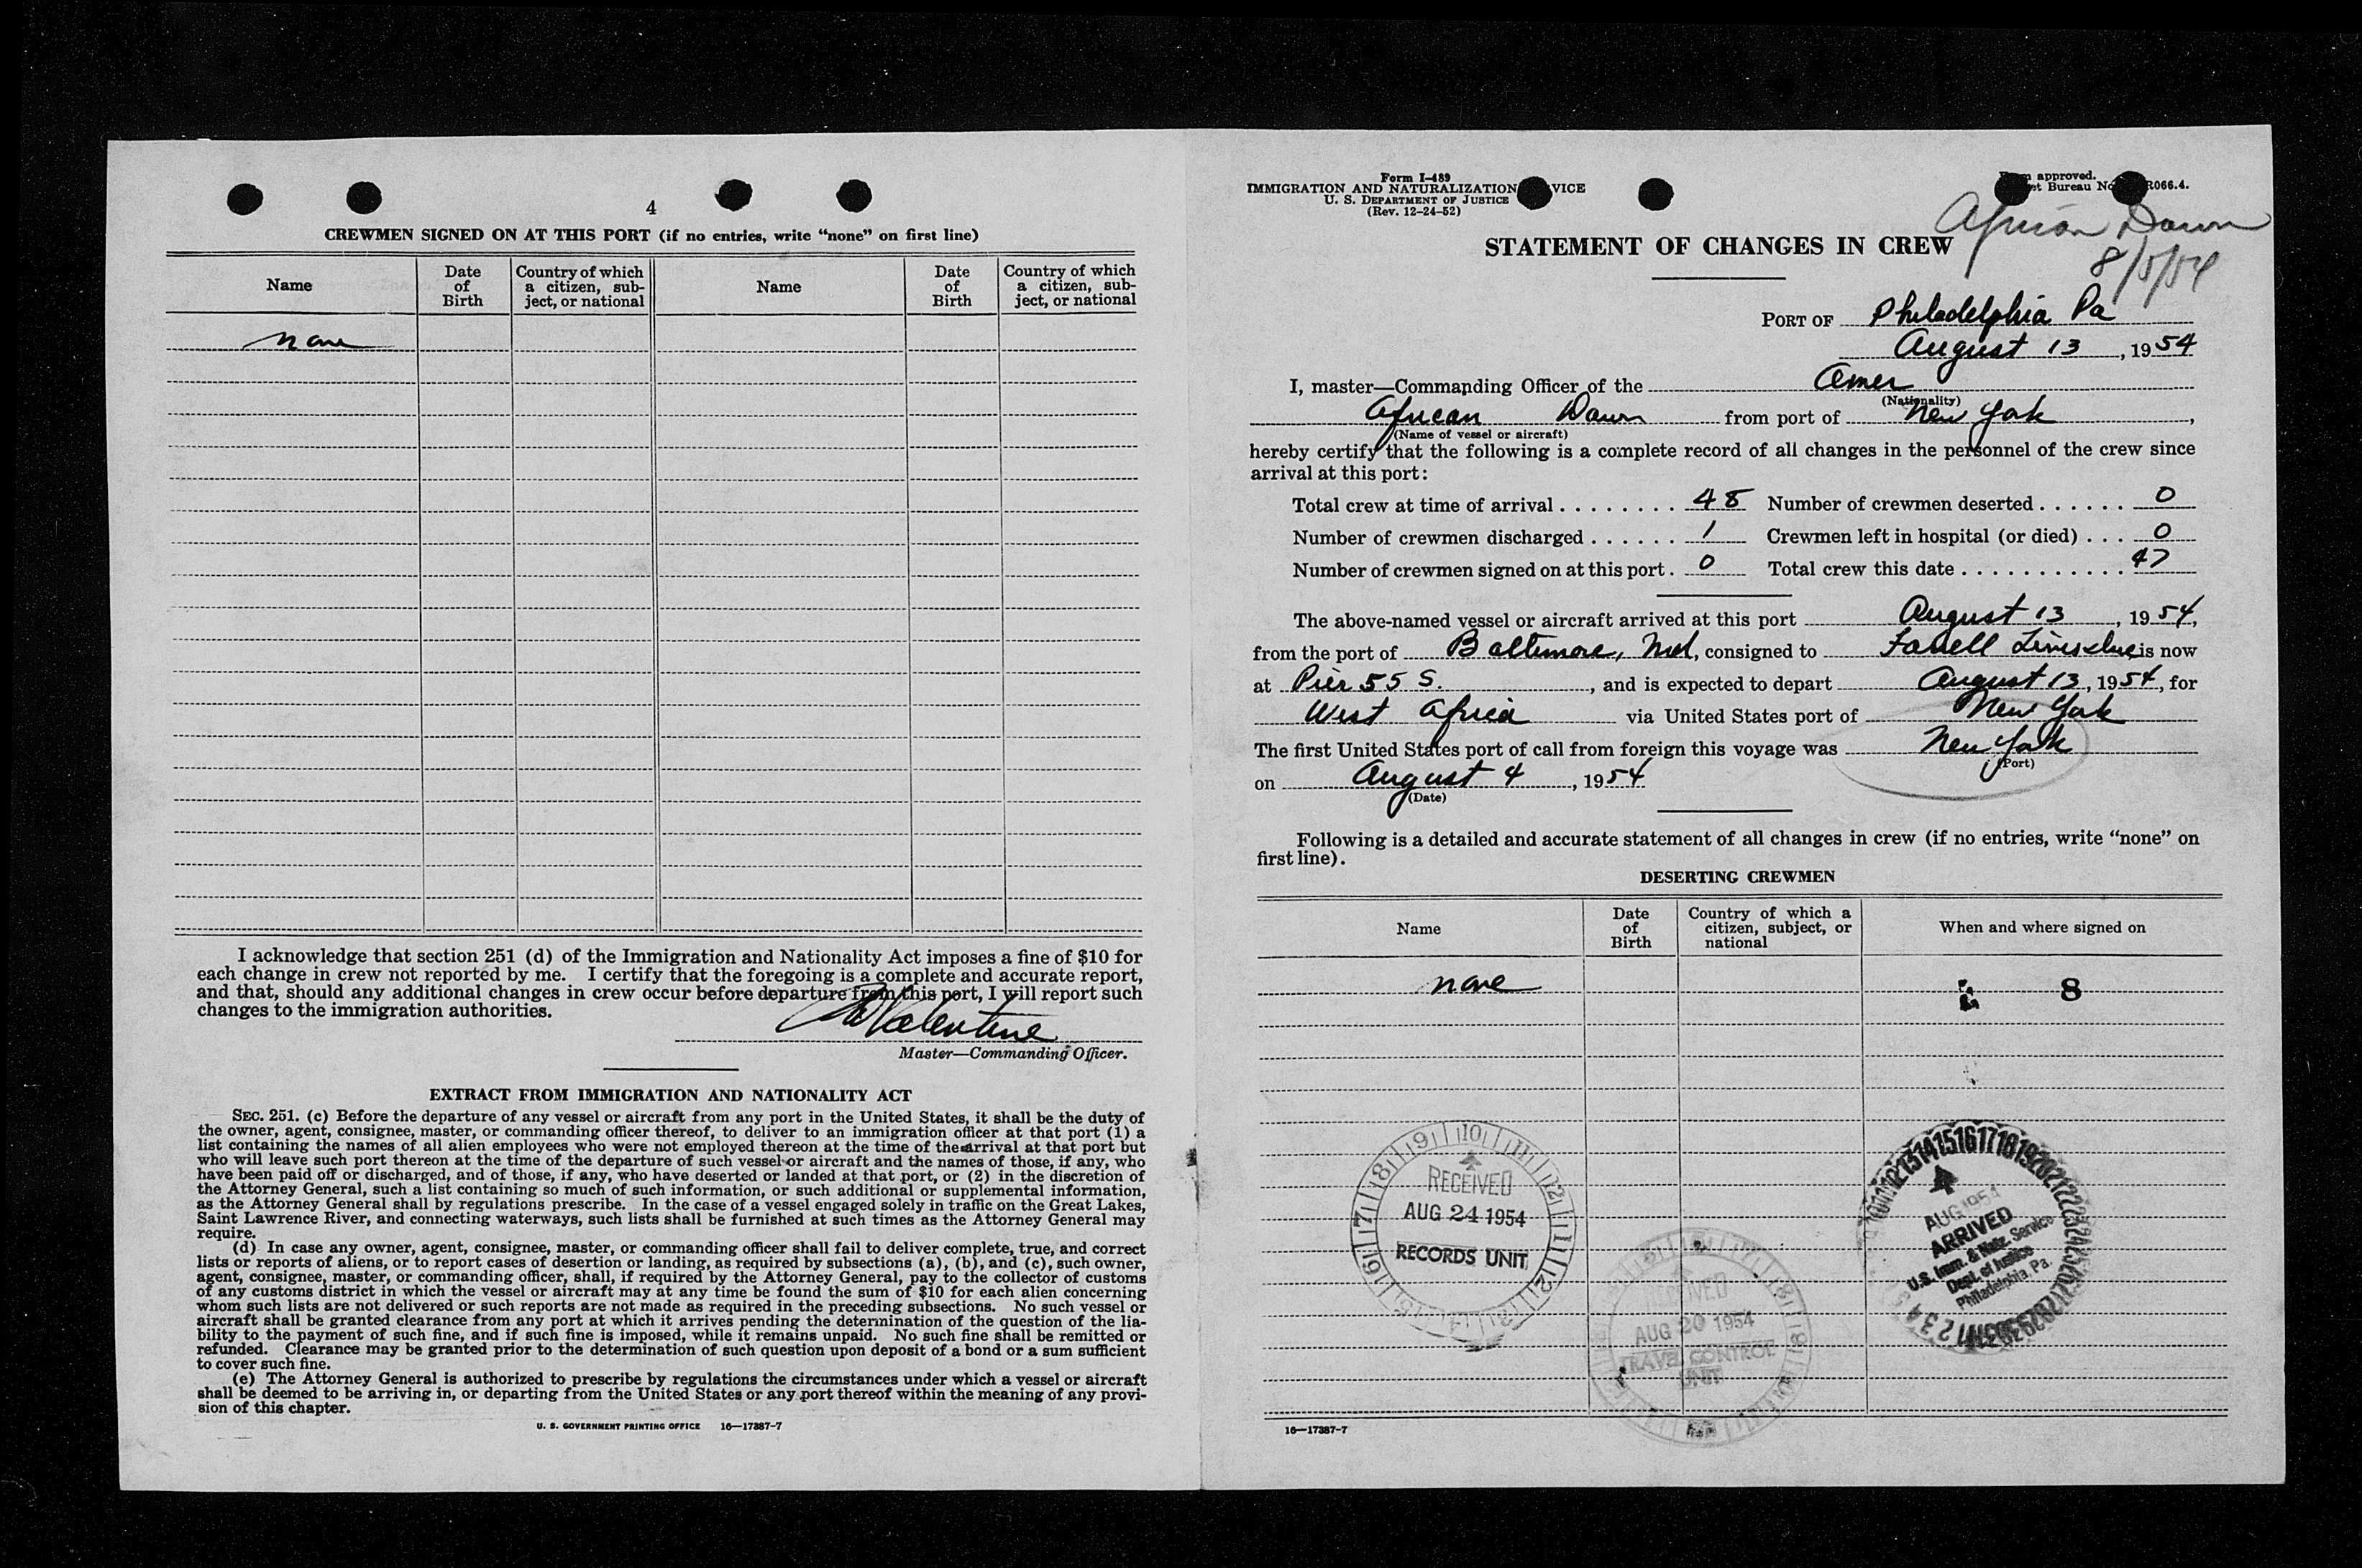 4
CREWMEN SIGNED ON AT THIS PORT (if no entries, write “none” on first line)
Name
Date of Birth
Country of which a citizen, subject, or national
Name
Date of Birth
Country of which a citizen, subject, or national
none
I acknowledge that section 251 (d) of the Immigration and Nationality Act imposes a fine of $10 for
each change in crew not reported by me. I certify that the foregoing is a complete and accurate report,
and that, should any additional changes in crew occur before departure from this port, I will report such
changes to the immigration authorities.
Valentine
Master—Commanding Officer.
EXTRACT FROM IMMIGRATION AND NATIONALITY ACT
SEC. 251. (c) Before the departure of any vessel or aircraft from any port in the United States, it shall be the duty of
the owner, agent, consignee, master, or commanding officer thereof, to deliver to an immigration officer at that port (1) a
list containing the names of all alien employees who were not employed thereon at the time of the arrival at that port but
who will leave such port thereon at the time of the departure of such vessel or aircraft and the names of those, if any, who
have been paid off or discharged, and of those, if any, who have deserted or landed at that port, or (2) in the discretion of
the Attorney General, such a list containing so much of such information, or such additional or supplemental information,
as the Attorney General shall by regulations prescribe. In the case of a vessel engaged solely in traffic on the Great Lakes,
Saint Lawrence River, and connecting waterways, such lists shall be furnished at such times as the Attorney General may
require.
(d) In case any owner, agent, consignee, master, or commanding officer shall fail to deliver complete, true, and correct
lists or reports of aliens, or to report cases of desertion or landing, as required by subsections (a), (b), and (c), such owner,
agent, consignee, master, or commanding officer, shall, if required by the Attorney General, pay to the collector of customs
of any customs district in which the vessel or aircraft may at any time be found the sum of $10 for each alien concerning
whom such lists are not delivered or such reports are not made as required in the preceding subsections. No such vessel or
aircraft shall be granted clearance from any port at which it arrives pending the determination of the question of the lia-
bility to the payment of such fine, and if such fine is imposed, while it remains unpaid. No such fine shall be remitted or
refunded. Clearance may be granted prior to the determination of such question upon deposit of a bond or a sum sufficient
to cover such fine.
(e) The Attorney General is authorized to prescribe by regulations the circumstances under which a vessel or aircraft
shall be deemed to be arriving in, or departing from the United States or any port thereof within the meaning of any provi-
sion of this chapter.
U. S. GOVERNMENT PRINTING OFFICE 16—17387-7
Form I-489
IMMIGRATION AND NATURALIZATION VICE
U. S. DEPARTMENT OF JUSTICE
(Rev. 12-24-52)
approved.
et Bureau No. R066.4.
African Dawn
8/5/54
STATEMENT OF CHANGES IN CREW
PORT OF Philadelphia Pa
August 13, 1954
I, master—Commanding Officer of the Amer
(Nationality)
African Dawn from port of New York,
(Name of vessel or aircraft)
hereby certify that the following is a complete record of all changes in the personnel of the crew since
arrival at this port:
Total crew at time of arrival . . . . . . . . 48 Number of crewmen deserted . . . . . . 0
Number of crewmen discharged . . . . . . 1 Crewmen left in hospital (or died) . . . 0
Number of crewmen signed on at this port . 0 Total crew this date . . . . . . . . . . . 47
The above-named vessel or aircraft arrived at this port August 13, 1954,
from the port of Baltimore, Md, consigned to Farrell Lines is now
at Pier 55 S., and is expected to depart August 13, 1954, for
West Africa via United States port of New York
The first United States port of call from foreign this voyage was New York
(Port)
on August 4, 1954
(Date)
Following is a detailed and accurate statement of all changes in crew (if no entries, write “none” on
first line).
DESERTING CREWMEN
Name
Date of Birth
Country of which a citizen, subject, or national
When and where signed on
none
8
RECEIVED
AUG 24 1954
RECORDS UNIT
RECEIVED
AUG 20 1954
TRAVEL CONTROL
UNIT
AUG 1954
ARRIVED
U.S. Imm. & Natz. Service
Dept. of Justice
Philadelphia, Pa.
16—17387-7